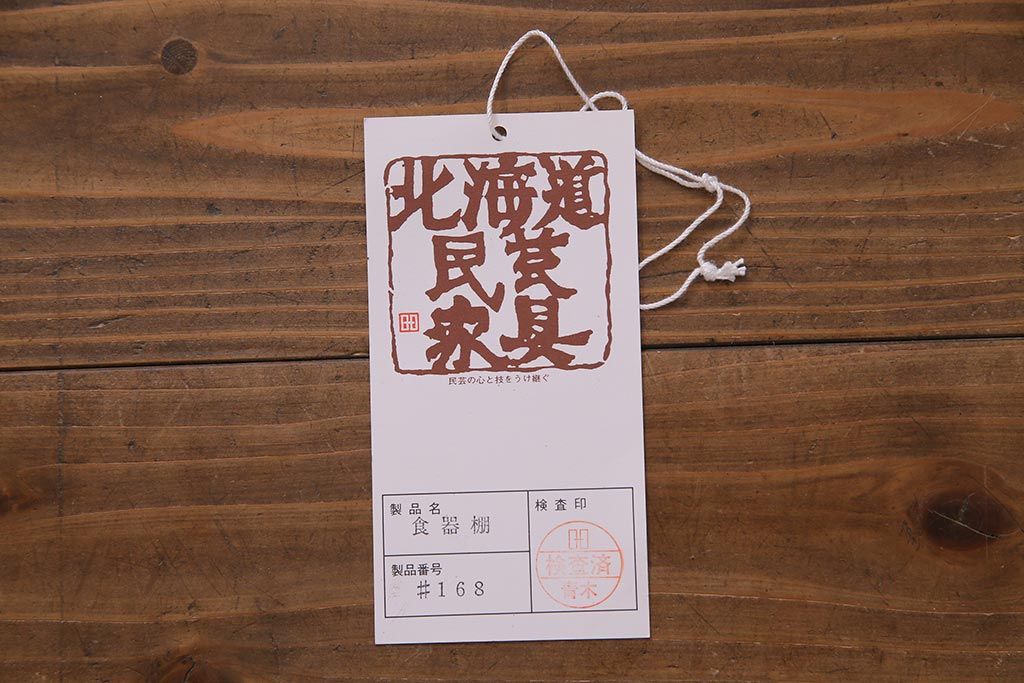 北海道
民芸
家具
民芸の心と技をうけ継ぐ
製品名
食器棚
製品番号
#168
検査印
検査済
青木